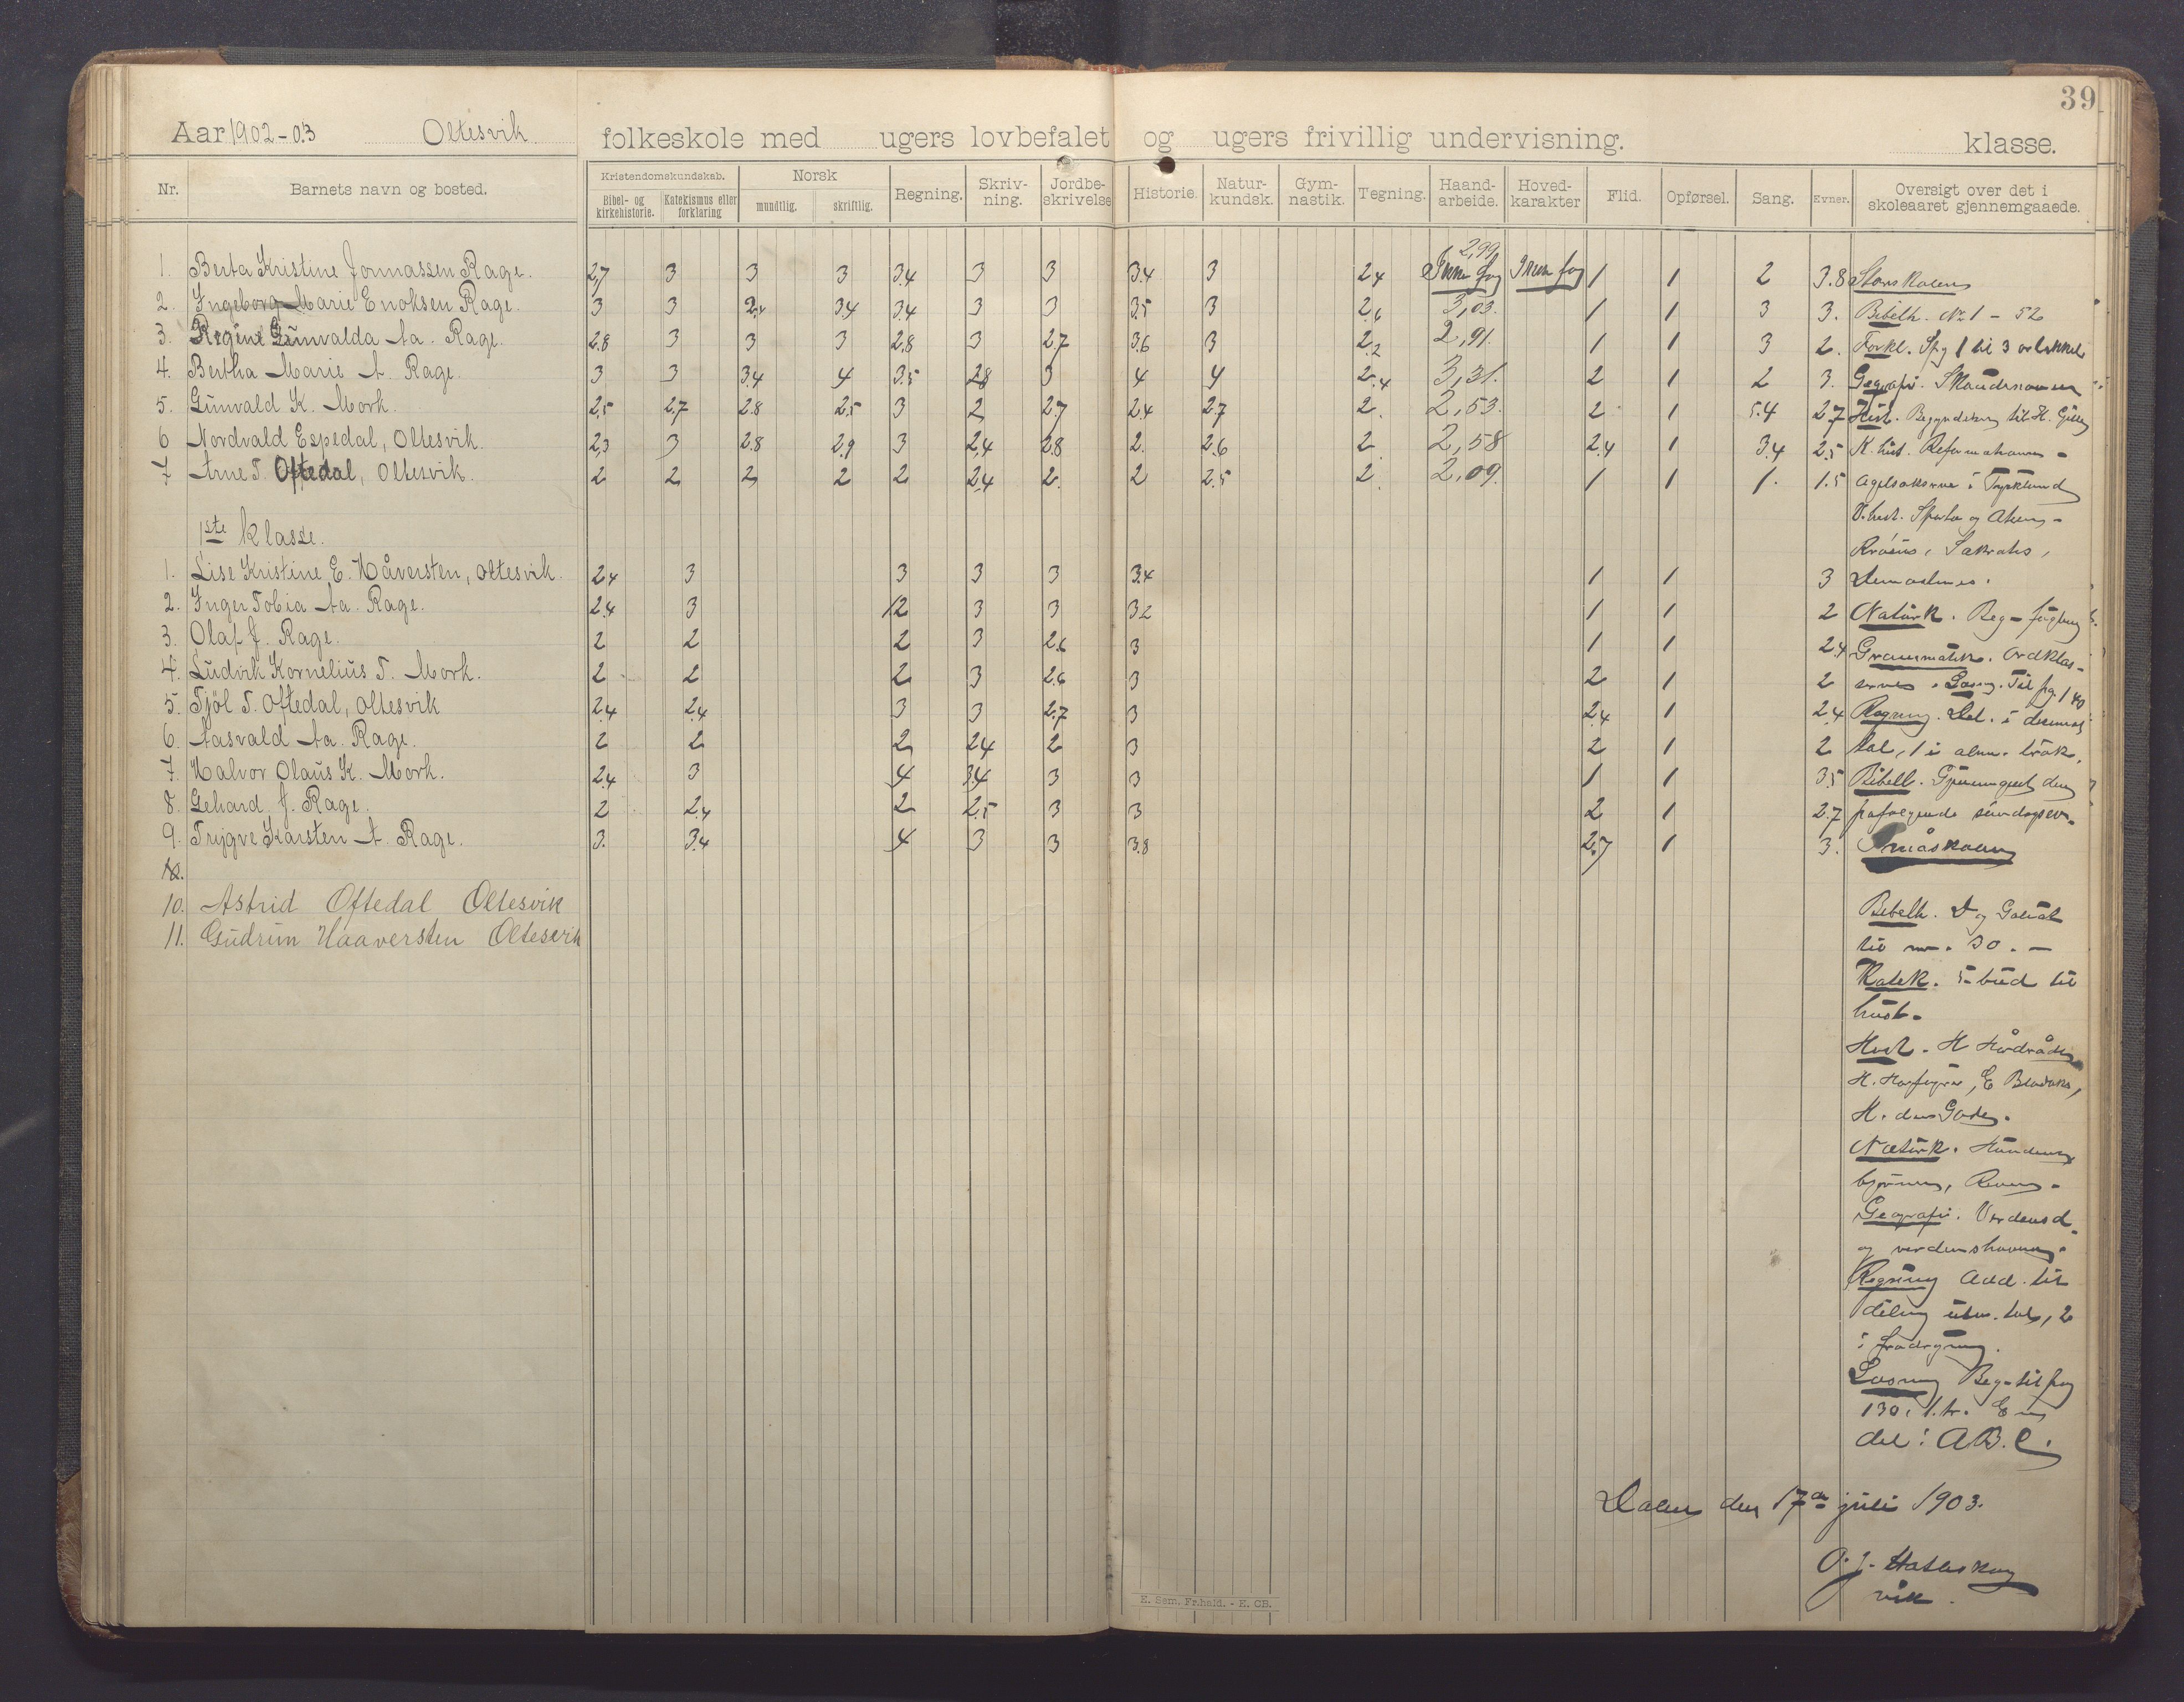 39
Aar 1902-03 Oltesvik folkeskole med ugers lovbefalet og ugers frivillig undervisning. klasse.
Nr. Barnets navn og bosted. Kristendomskundskab. Bibel- og kirkehistorie. Katekismus eller forklaring Norsk mundtlig. skriftlig. Regning. Skriv-ning. Jordbe-skrivelse Historie. Natur-kundsk. Gym-nastik. Tegning. Haand-arbeide. Hoved-karakter Flid. Opførsel. Sang. Evner. Oversigt over det i skoleaaret gjennemgaaede.
2,99
1. Berta Kristine Jonnassen Rage. 2,7 3 3 3 3.4 3 3 3.4 3 2.4 1 1 2 3.8 Storskolen
2. Ingeborg Marie Enoksen Rage. 3 3 2.4 3.4 3.4 3 3 3.5 3 2.6 3,03. 1 1 3 3. Bibelh. No 1 - 52
3. Regine Gunvalda Aa. Rage. 2.8 3 3 3 2.8 3 2.7 3.6 3 2.2 2,91. 1 1 3 2. Forkl. 1 til 3
4. Bertha Marie A. Rage. 3 3 3.4 4 3.5 2.8 3 4 4 2.4 3,31. 2 1 2 3. Geografi.
5. Gunvald K. Mork. 2.5 2.7 2.8 2.5 3 2 2.7 2.4 2.7 2. 2,53. 2 1 5.4 2.7 Hist. til H.
6 Nordvald Espedal, Oltesvik. 2,3 3 2.8 2.9 3 2.4 2.8 2. 2.6 2 2,58 2.4 1 3.4 2.5 K. hist. Reformationen -
7 Arne T. Oftedal, Oltesvik. 2 2 2 2 2 2.4 2. 2 2.5 2. 2,09. 1 1 1. 1.5 i Tyskland
V. hist. Sparta og Athen -
1ste klasse. Sakrates,
1. Lise Kristine E. Håversten, Oltesvik. 2.4 3 3 3 3 3.4 1 1 3 Demostenes.
2. Inger Tobia Aa. Rage. 2.4 3 2 3 3 3.2 1 1 2 Naturk. Beg -
3. Olaf J. Rage. 2 2 2 3 2.6 3 1 1 2.4 Grammatik. Ordklas-
4. Ludvik Kornelius T. Mork. 2 2 2 3 2.6 3 2 1 2 serne. Læsn. Til pag 140
5. Tjöl T. Oftedal, Oltesvik 2.4 2.4 3 3 2.7 3 2.4 1 2.4 Regning. i
6. Aasvald Aa. Rage. 2 2 2 2.4 2 3 2 1 2 tal, 1 i alm. brøk.
7. Halvor Olaus K. Mork. 2.4 3 4 3.4 3 3 1 1 3.5 Bibell.
8. Gehard J. Rage. 2 2.4 2 2.5 3 3 2 1 2.7
9. Trygve Karsten A. Rage. 3. 3.4 4 3 3 3.8 2.7 1 3. Småskolen
10.
10. Astrid Oftedal Oltesvik
Bibelh. D og Goliat
11. Gudrun Haaversten Oltesvik
til nr. 30. -
Katek. 5 bud til
hust-
Hist. H Hårdråde
H. Harfagre, E Blodøks,
H. den Gode.
Naturk. Hunden,
bjørnen, Reven -
Geografi. Verdensd.
og verdenshavene.
Regning Add. til
deling tal, 2
i fradragning.
Læsning Beg- til pag
130. En
del: A.B.C.
Dalen den 17de juli 1903.
O. J. Hatleskog
vik.
E. Sem, Fr.hald. - E. CB.